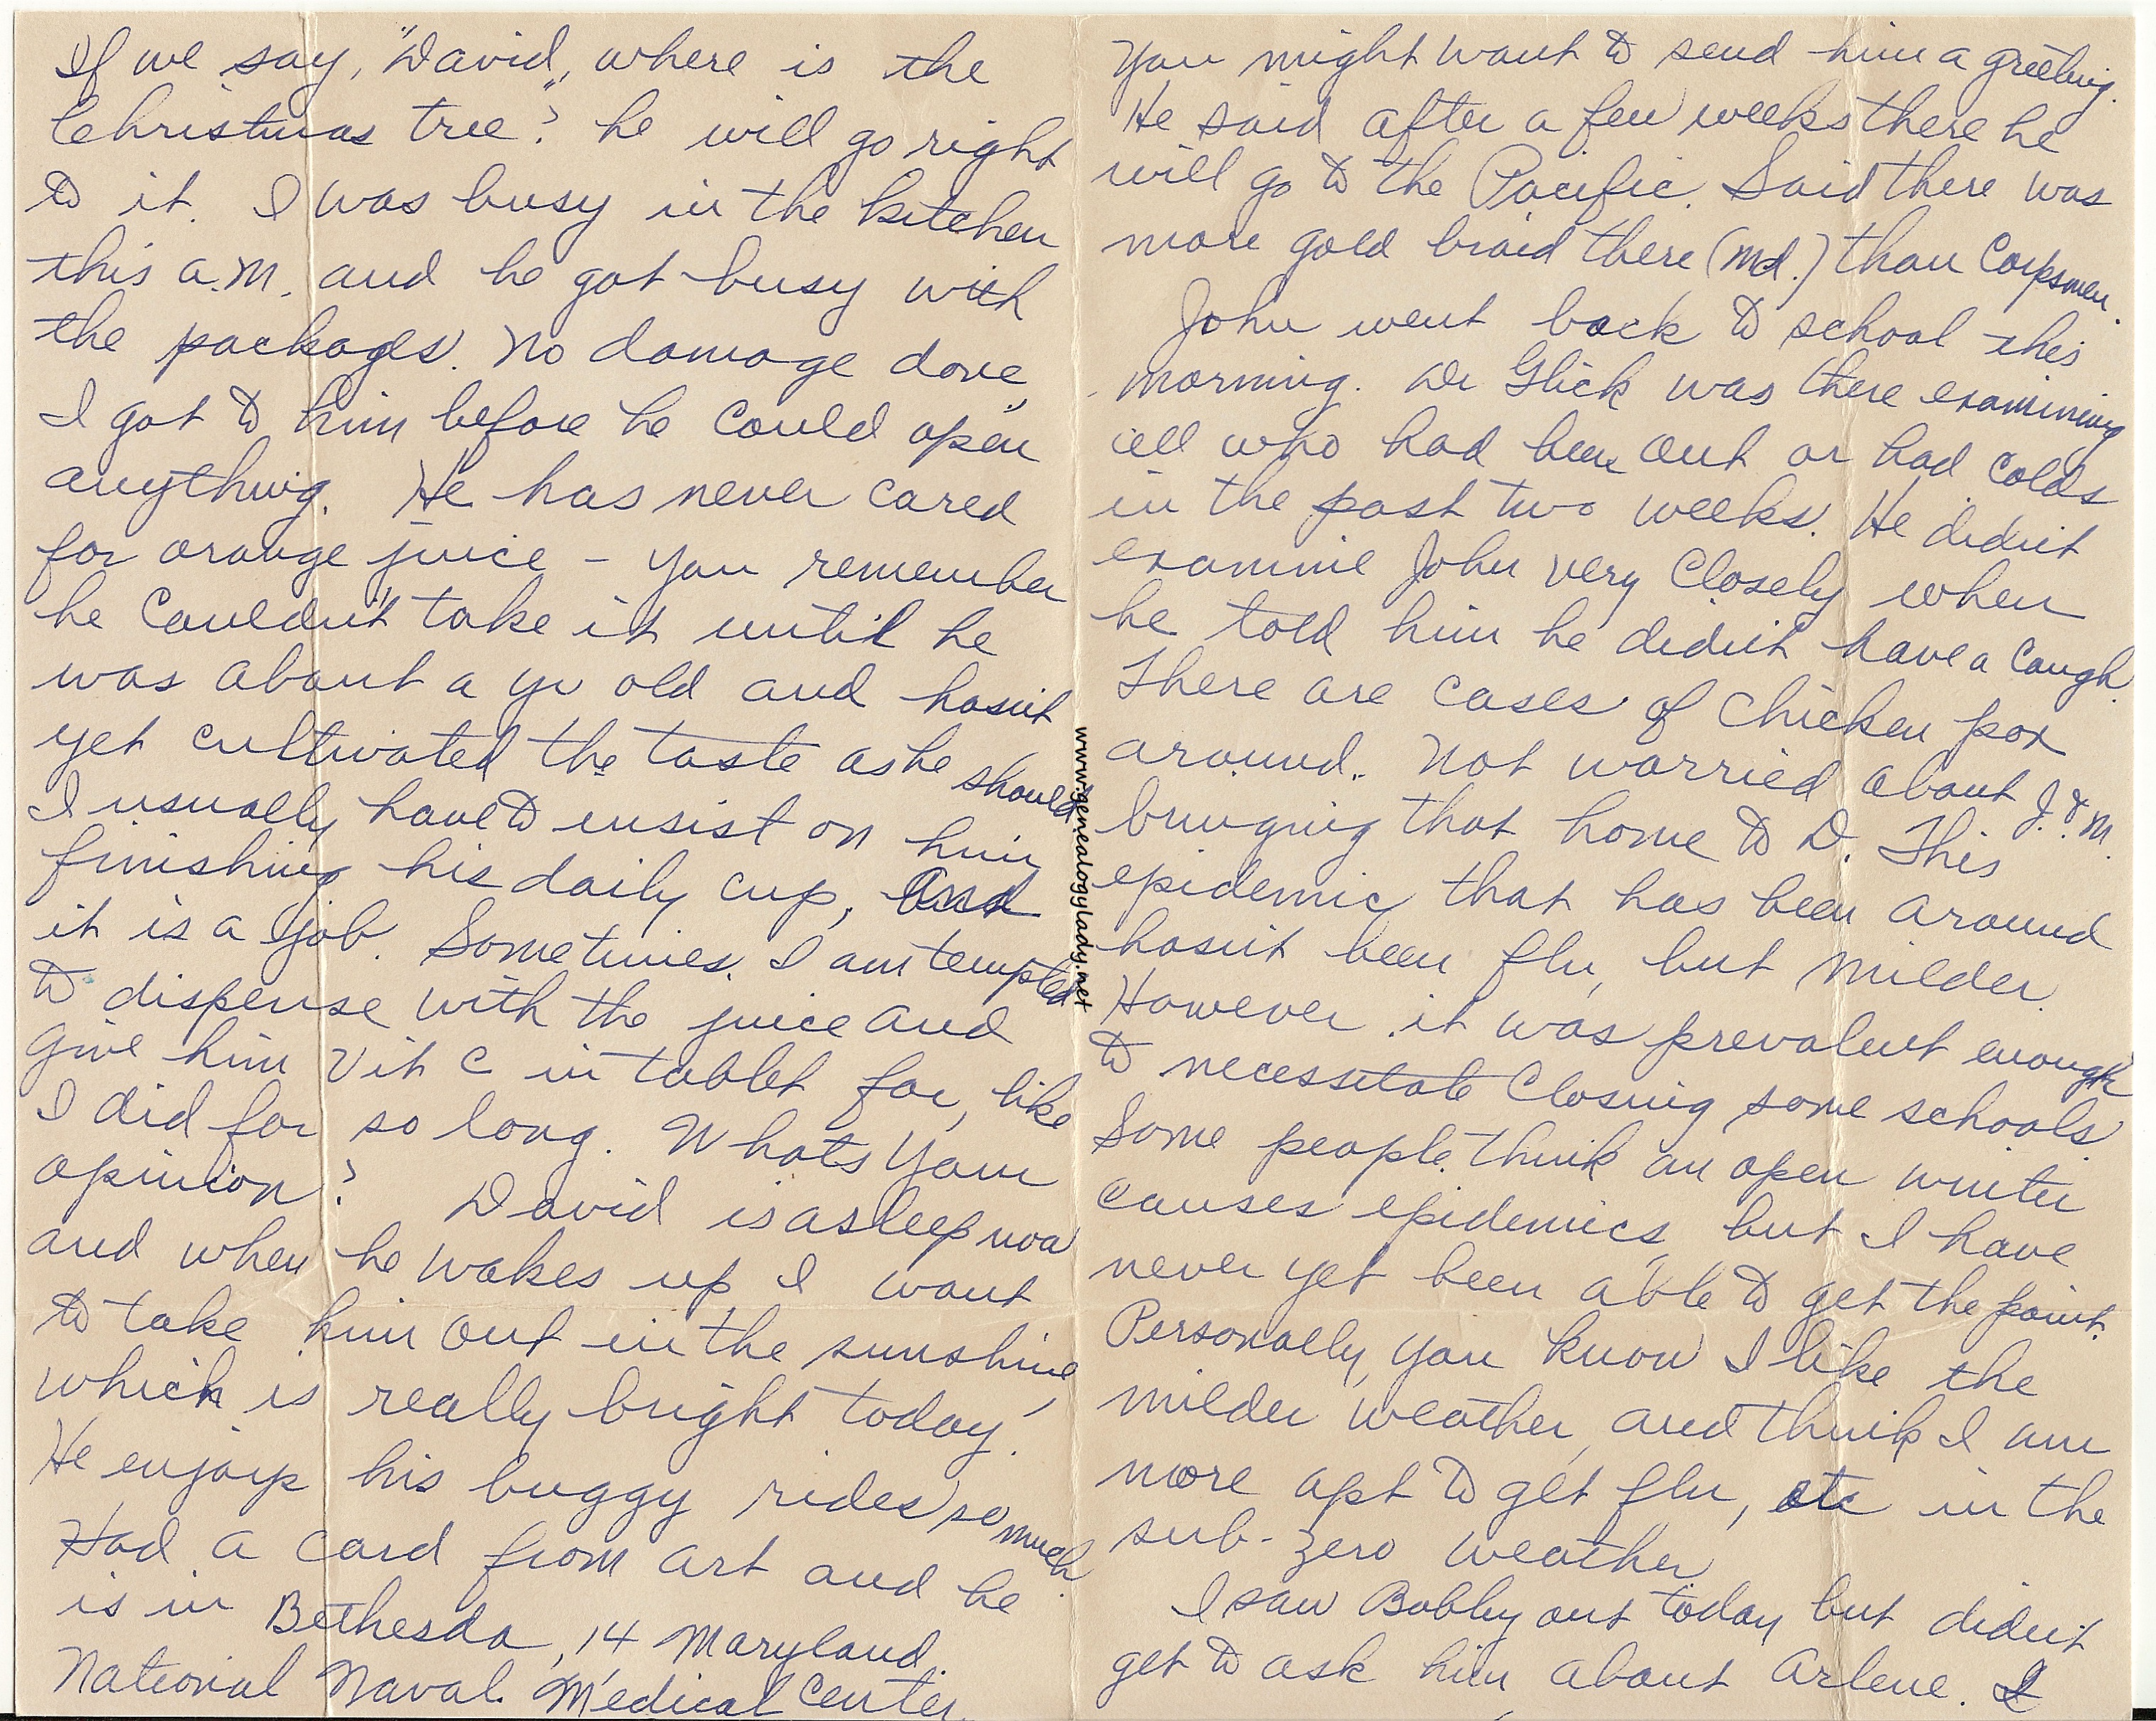 If we say, "David, where is the
Christmas tree"? he will go right
to it. I was busy in the kitchen
this a.m. and he got busy with
the packages. No damage done,
I got to him before he could "open"
anything. He has never cared
for orange juice – you remember
he couldn't take it until he
was about a yr old and hasn't
yet cultivated the taste as he should
I usually have to insist on him
finishing his daily cup, and
it is a "job". Sometimes I am tempted
to dispense with the juice and
give him Vit C in tablet for, like
I did for so long. Whats your
opinion? David is asleep now
and when he wakes up I want
to take him out in the sunshine,
which is really bright today.
He enjoys his buggy rides so much.
Had a card from Art and he
is in Bethesda, 14 Maryland
National Naval Medical Center.
You might want to send him a greeting.
He said after a few weeks there he
will go to the Pacific. Said there was
more gold braid there (Md.) than Corpsmen.
John went back to school this
morning. Dr Glick was there examining
all who had been out or had colds
in the past two weeks. He didn't
examine John very closely when
he told him he didn't have a cough.
There are cases of chicken pox
around. Not worried about J. & M.
bringing that home to D. This
epidemic that has been around
hasn't been flu, but milder.
However it was prevalent enough
to necessitate closing some schools.
Some people think an open winter
causes epidemics, but I have
never yet been able to get the point.
Personally, you know I like the
milder weather, and think I am
more apt to get flu, etc in the
sub-zero weather
I saw Bobby out today but didn't
get to ask him about Arlene. I
www.genealogylady.net